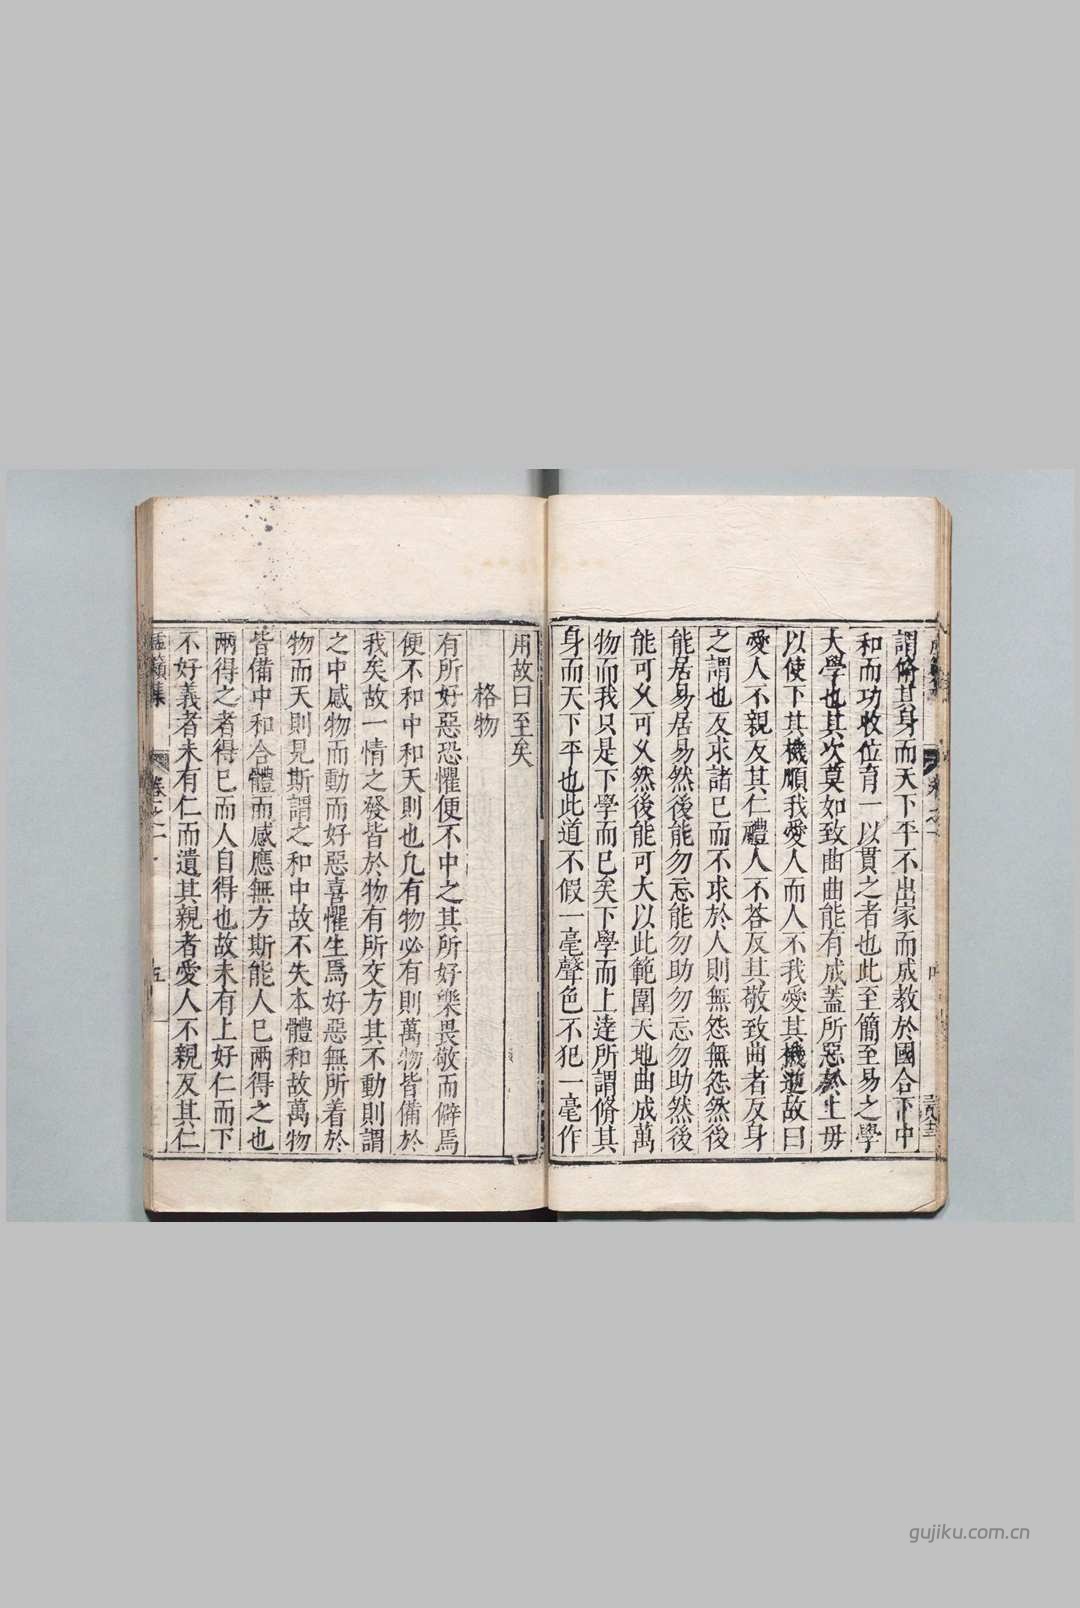 謂脩其身而天下平不出家而成教於國合下中
和而功收位育一以貫之者也此至簡至易之學
大學也其次莫如致曲曲能有成蓋所惡於上毋
以使下其機順我愛人而人不我愛其機逆故曰
愛人不親反其仁禮人不荅反其敬致曲者反身
之謂也反求諸己而不求於人則無怨無怨然後
能居易居易然後能勿忘能勿助勿忘勿助然後
能可乂可乂然後能可大以此範圍天地曲成萬
物而我只是下學而已矣下學而上達所謂脩其
身而天下平也此道不假一毫聲色不犯一毫作
用故曰至矣
格物
有所好惡恐懼便不中之其所好樂畏敬而僻焉
便不和中和天則也凡有物必有則萬物皆備於
我矣故一情之發皆於物有所交方其不動則謂
之中感物而動而好惡喜懼生焉好惡無所着於
物而天則見斯謂之和中故不失本體和故萬物
皆備中和合體而感應無方斯能人己兩得之也
兩得之者得己而人自得也故未有上好仁而下
不好義者未有仁而遺其親者愛人不親反其仁
籟集
卷之一
五
gujiku.com.cn